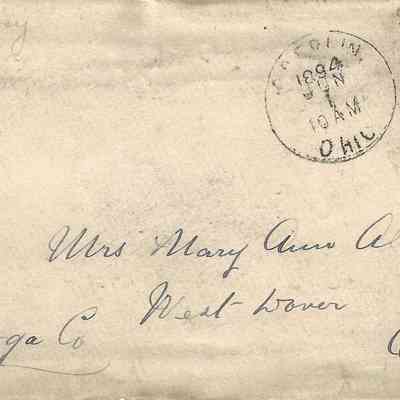 1894
JUN
1
10 AM
OHIO
Mrs Mary Ann Al
West Dover
ga Co